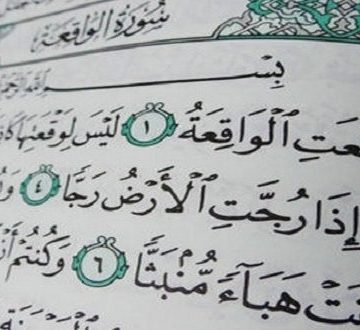 سُورَةُ الوَاقِعَةِ
بِسْـــــمِ اللَّهِ الرَّحْمَـٰ
عَتِ ٱلْوَاقِعَةُ ١ لَيْسَ لِوَقْعَتِهَا كَا
إِذَا رُجَّتِ ٱلْأَرْضُ رَجًّا ٤ وَ
تْ هَبَآءً مُّنۢبَثًّا ٦ وَكُنتُمْ أَزْ